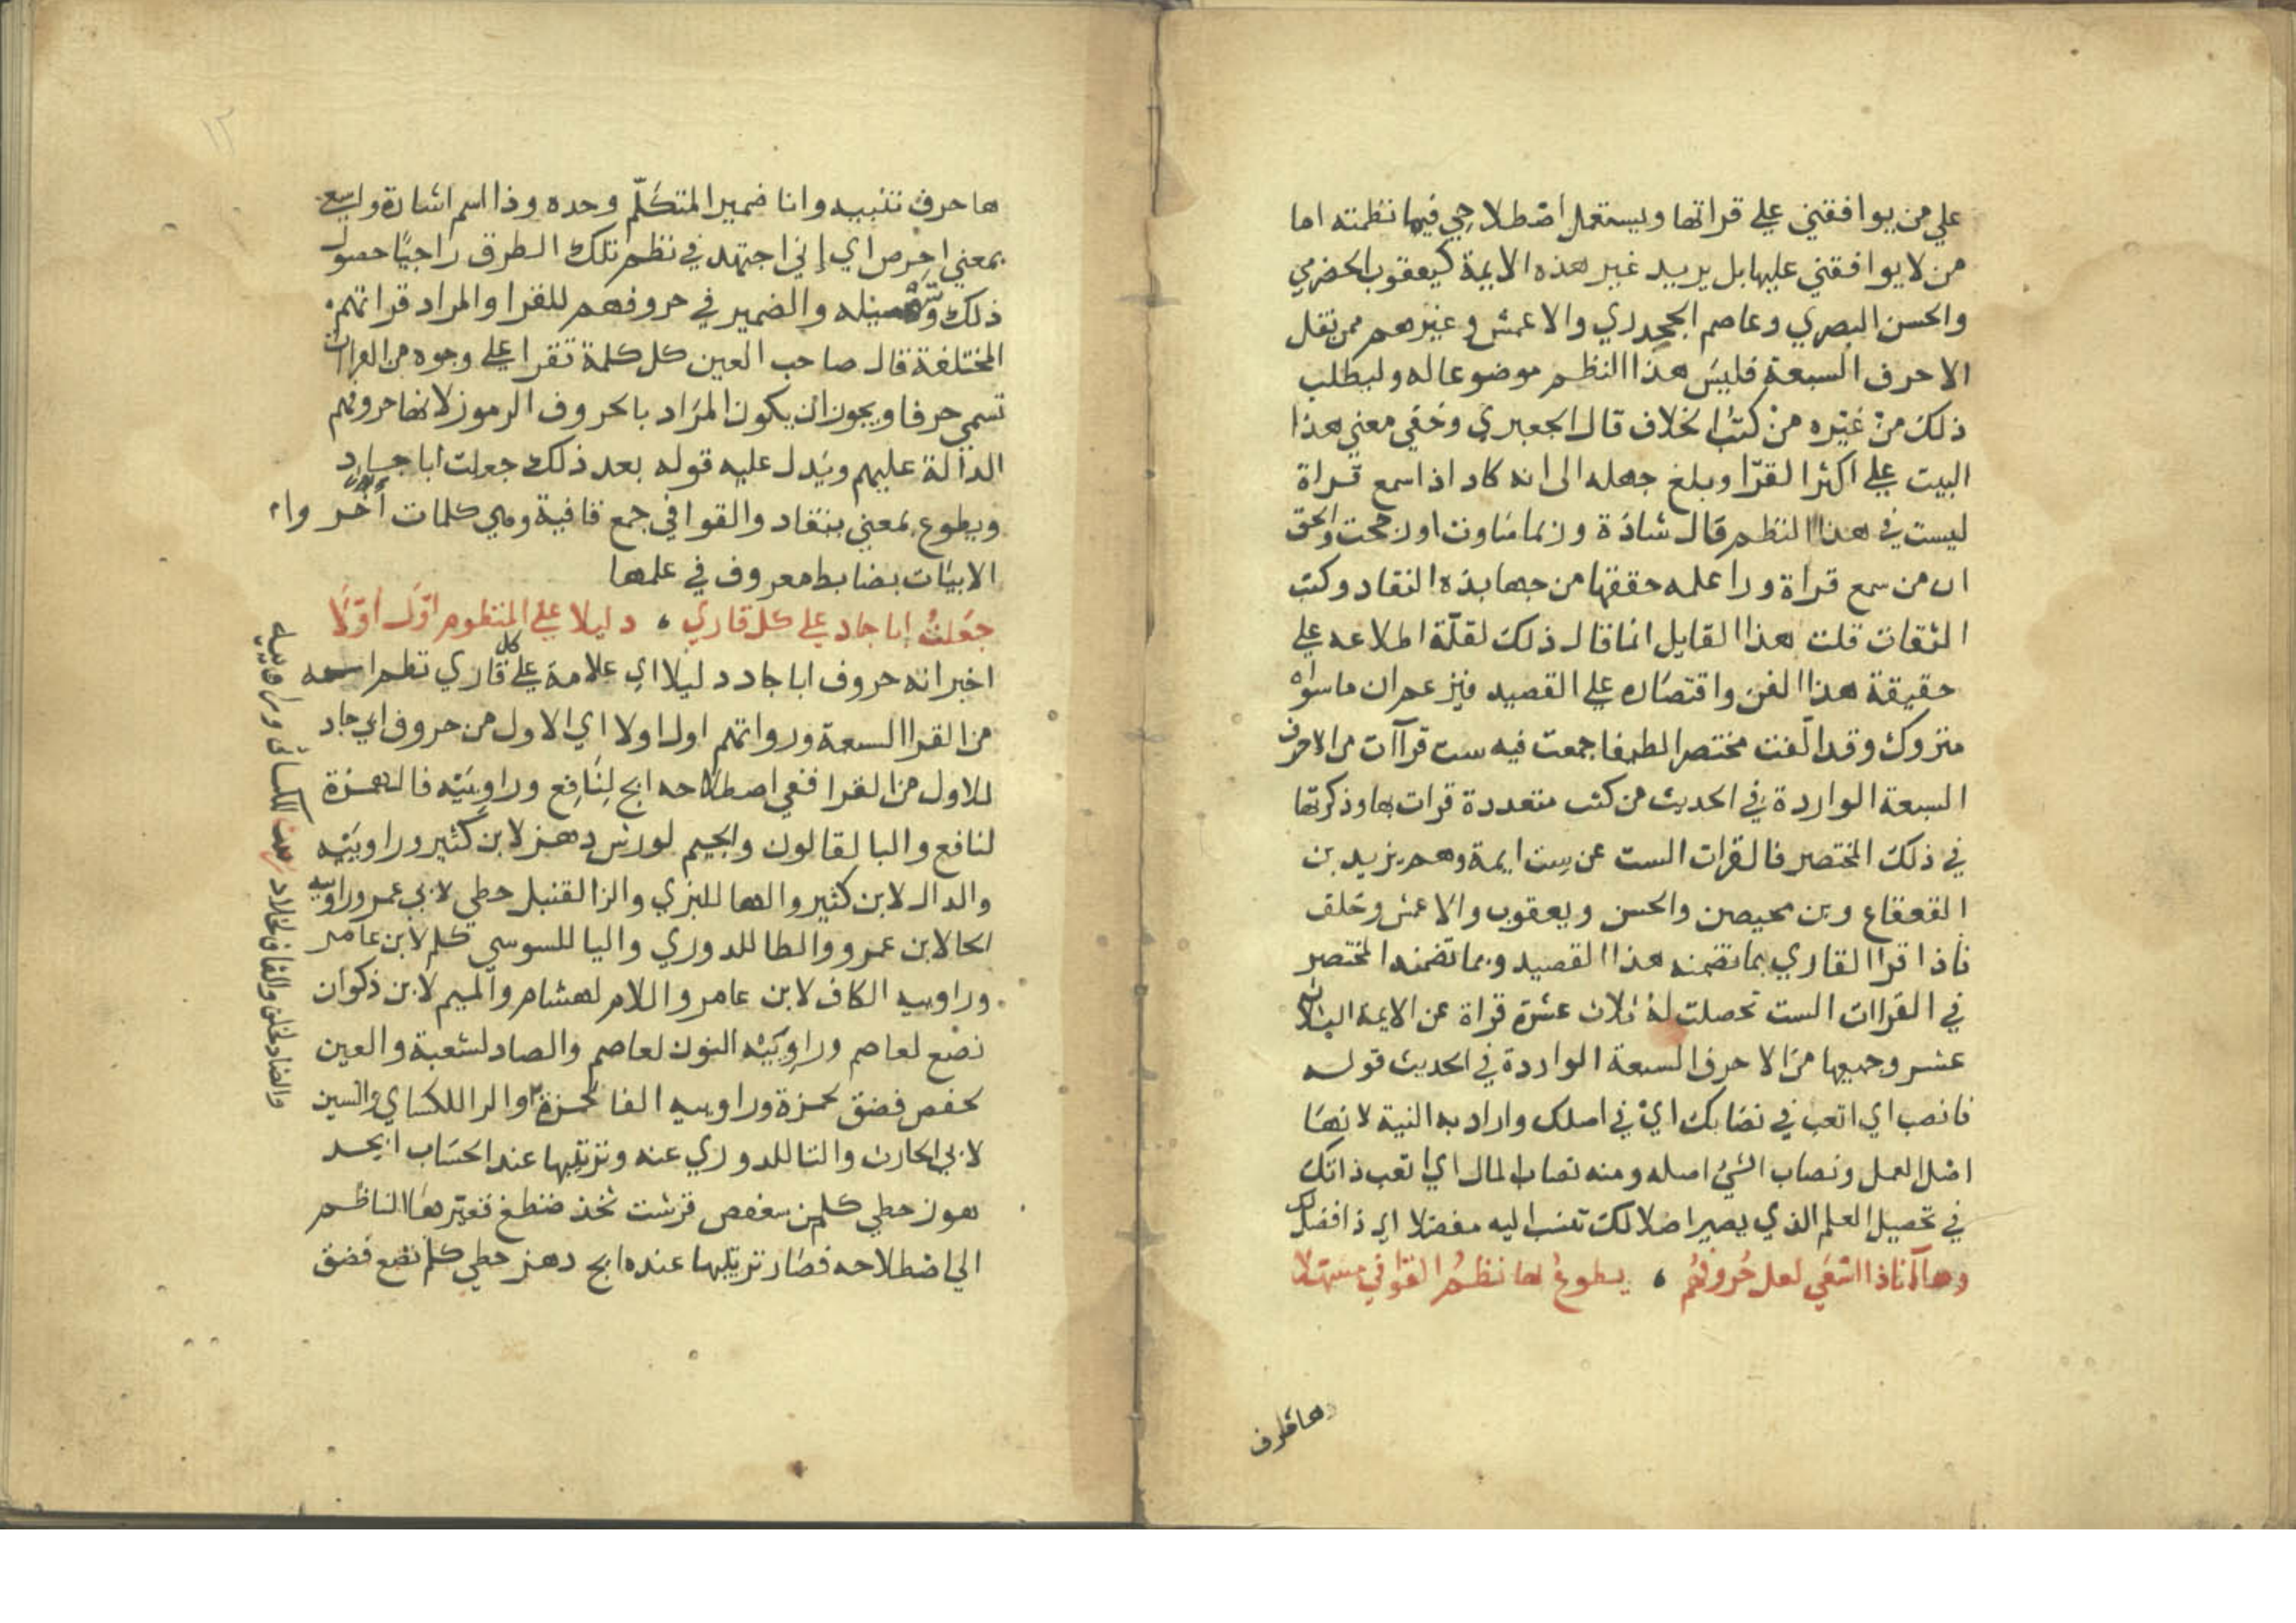 علي من يوافقني علي قراتها ويستعمل اصطلاحي فيما نظمته اما
من لا يوافقني عليها بل يريد غير هذه الايمة كيعقوب الحضرمي
والحسن البصري وعاصم الجحدري والاعمش وغيرهم ممن نقل
الاحرف السبعة فليس هذا النظم موضوعا له وليطلب
ذلك من غيره من كتب الخلاف قال الجعبري وخفي معني هذا
البيت علي اكثر القرا وبلغ جهله الى انه كاد اذا سمع قراة
ليست في هذا النظم قال شاذة وربما ساوت او رجحت والحق
ان من سمع قراة ورا علمه حققها من جهابذة النقاد وكتب
الثقات قلت هذا القايل انما قال ذلك لقلة اطلاعه علي
حقيقة هذا الفن واقتصاره علي القصيد فيزعم ان ما سواه
متروك وقد الفت مختصرا لطيفا جمعت فيه ست قراآت من الاحرف
السبعة الواردة في الحديث من كتب متعددة قرات بها وذكرتها
في ذلك المختصر فالقرات الست عن ست ايمة وهم يزيد بن
القعقاع وبن محيصن والحسن ويعقوب والاعمش وخلف
فاذا قرا القاري بما تضمنه هذا القصيد وبما تضمنه المختصر
في القراات الست تحصلت له ثلاث عشرة قراة عن الايمة الثلاثة
عشر وجميعها من الاحرف السبعة الواردة في الحديث قوله
فانصب اي اتعب في نصابك اي في اصلك واراد به النية لانها
اصل العمل ونصاب الشي اصله ومنه نصاب المال اي اتعب ذاتك
في تحصيل العلم الذي يصير اصلا لك تنسب اليه مفضلا اي ذا فضل
وها أنا ذا اسعي لعل حروفهم ، يطوع لها نظم القوافي مسهلا
ها حرف
ها حرف تنبيه وانا ضمير المتكلم وحده وذا اسم اشارة واسعي
بمعني احرص اي إني اجتهد في نظم تلك الطرق راجيا حصول
ذلك وتسهيله والضمير في حروفهم للقرا والمراد قراتهم
المختلفة قال صاحب العين كل كلمة تقرا علي وجوه من القرات
تسمي حرفا ويجوز ان يكون المراد بالحروف الرموز لانها حروفهم
الدالة عليهم ويدل عليه قوله بعد ذلك جعلت ابا جاد
ويطوع بمعني ينقاد والقوافي جمع قافية وهي كلمات أخر
الابيات بضابط معروف في علمها
جعلت ابا جاد علي كل قاري ، دليلا علي المنظوم اول اولا
اخبر انه حروف ابا جاد دليلا اي علامة علي كل قاري نظم اسمه
من القرا السبعة ورواتهم اول اولا اي الاول من حروف ابي جاد
للاول من القرا ففي اصطلاحه ابج لنافع وراوييه فالهمزة
لنافع والبا لقالون والجيم لورش دهز لابن كثير وراوييه
والدال لابن كثير والها للبزي والزا لقنبل حطي لابي عمر وراوييه
الحا لابن عمرو والطا للدوري واليا للسوسي كلم لابن عامر
وراوييه الكاف لابن عامر واللام لهشام والميم لابن ذكوان
نصع لعاصم وراوييه النون لعاصم والصاد لشعبة والعين
لحفص فضق لحمزة وراوييه الفا لحمزة والرا للكساي والسين
لابي الحارث والتا للدوري عنه وترتيبها عند الحساب ابجد
هوز حطي كلمن سعفص قرشت ثخذ ضظغ فغيرها الناظم
الي اصطلاحه فصار ترتيبها عنده ابج دهز حطي كلم نصع فضق
والضاد لخلف والقاف لخلاد رست للكسائي وراوييه